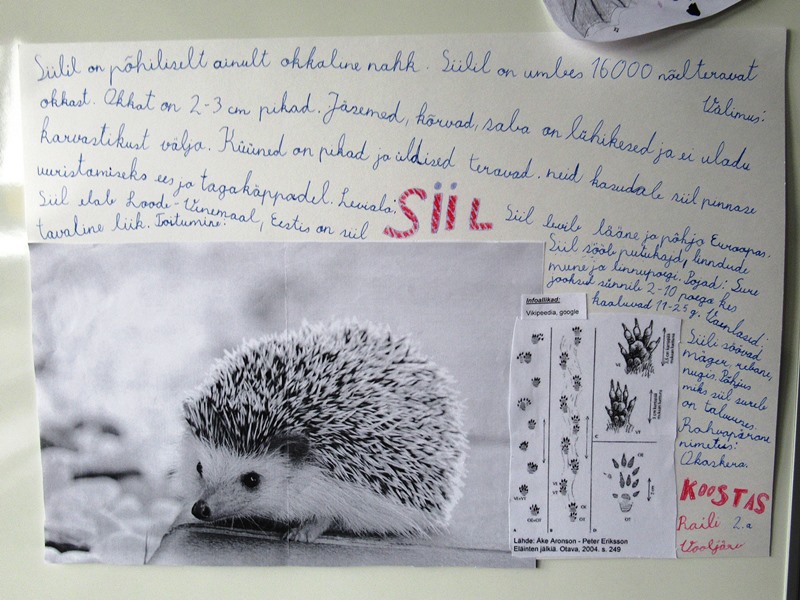 Siilil on põhiliselt ainult okkaline nahk. Siilil on umbes 16000 nõelteravat
okkast. Okkat on 2-3 cm pikad. Jäsemed, kõrvad, saba on lühikesed ja ei uladu
Välimus:
karvastikust välja. Küüned on pikad ja üldised teravad. neid kasudale siil pinnase
uuristamiseks ees ja tagakäppadel. Leviala:
SiiL
Siil levib lääne ja põhja Euroopas.
Siil elab Loode-Venemaal, Eestis on siil
tavaline liik. Toitumine:
Siil sööb putukaid, linndude
mune ja linnupoegi. Pojad: Sure
jooksul sünnib 2-10 poega kes
kaaluvad 11-25 g. Vaenlased:
Siili söövad
mäger, rebane,
nugis. Põhjus
miks siil sureb
on taluunes.
Rahvapärane
nimetus:
Okaskera.
KOOSTAS
Raili 2.a
Infoallikad:
Vikipeedia, google
Lähde: Åke Aronson - Peter Eriksson
Eläinten jälkiä. Otava, 2004. s. 249